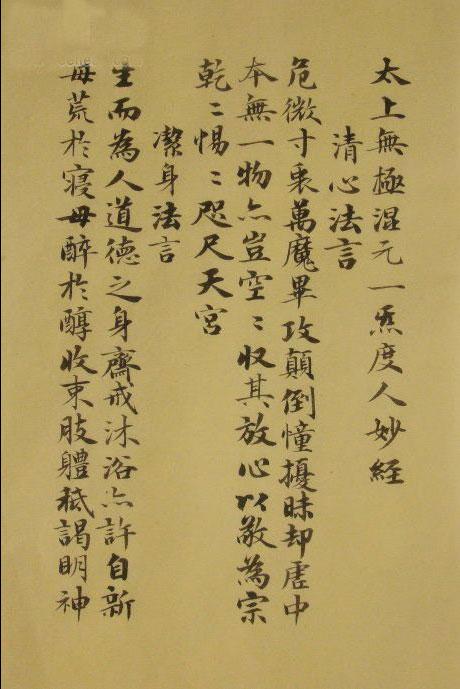 太上無極混元一炁度人妙經
清心法言
危微寸衷萬魔畢攻顛倒憧擾昧却虛中
本無一物亦豈空〻収其放心以敬為宗
乾〻惕〻咫尺天宮
潔身法言
生而為人道德之身齋戒沐浴亦許自新
毋荒於寢毋醉於醇收束肢體祗謁明神